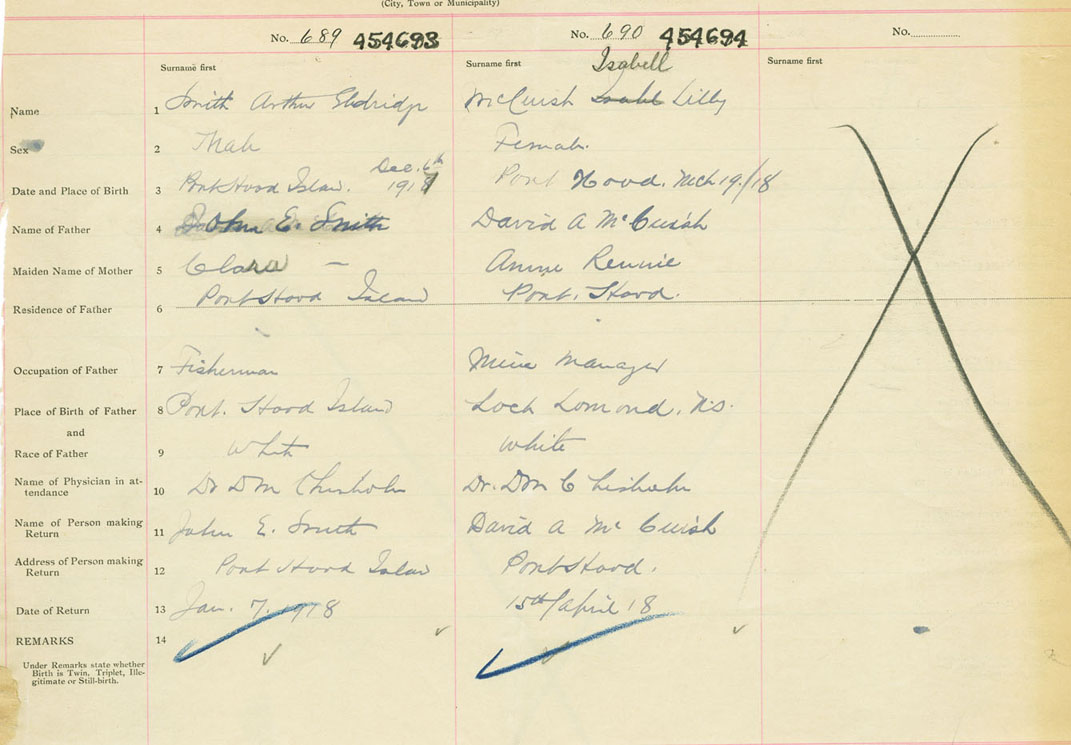 (City, Town or Municipality)
No. 689 454693 No. 690 454694 No.
Isabell
Surname first Surname first Surname first
Name 1 Smith Arthur Eldridge McCuish Isabel Lilly
Sex 2 Male Female.
Dec. 6th
Date and Place of Birth 3 Port Hood Island. 1917 Port Hood. Mch 19/18
Name of Father 4 John E. Smith David A McCuish
Maiden Name of Mother 5 Clara — Annie Rennie
Port Hood Island Port. Hood.
Residence of Father 6
Occupation of Father 7 Fisherman Mine Manager
Place of Birth of Father 8 Port. Hood Island Loch Lomond. N.S.
and
Race of Father 9 White White
Name of Physician in at-
tendance 10 Dr D M Chisholm Dr. D M Chisholm
Name of Person making
Return 11 John E. Smith David A Mc Cuish
Address of Person making
Return 12 Port Hood Island Port Hood.
Date of Return 13 Jan. 7. 1918 15th/April 18
REMARKS 14
Under Remarks state whether
Birth is Twin, Triplet, Ille-
gitimate or Still-birth.